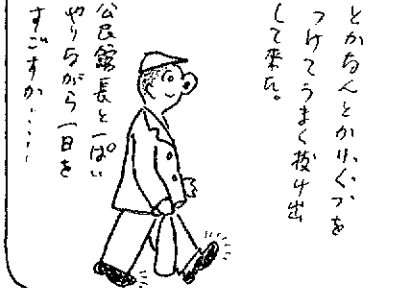 とかなんとかりくつを
つけてうまく抜け出
して来た。
公民館長と一ぱい
やりながら一日を
すごすか‥‥‥